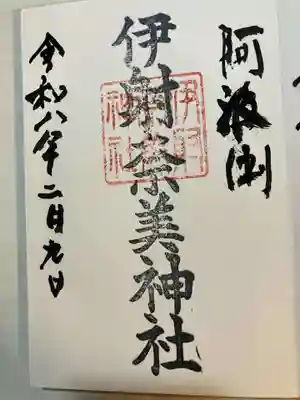 阿波
伊射奈美神社
令和八年二月九日